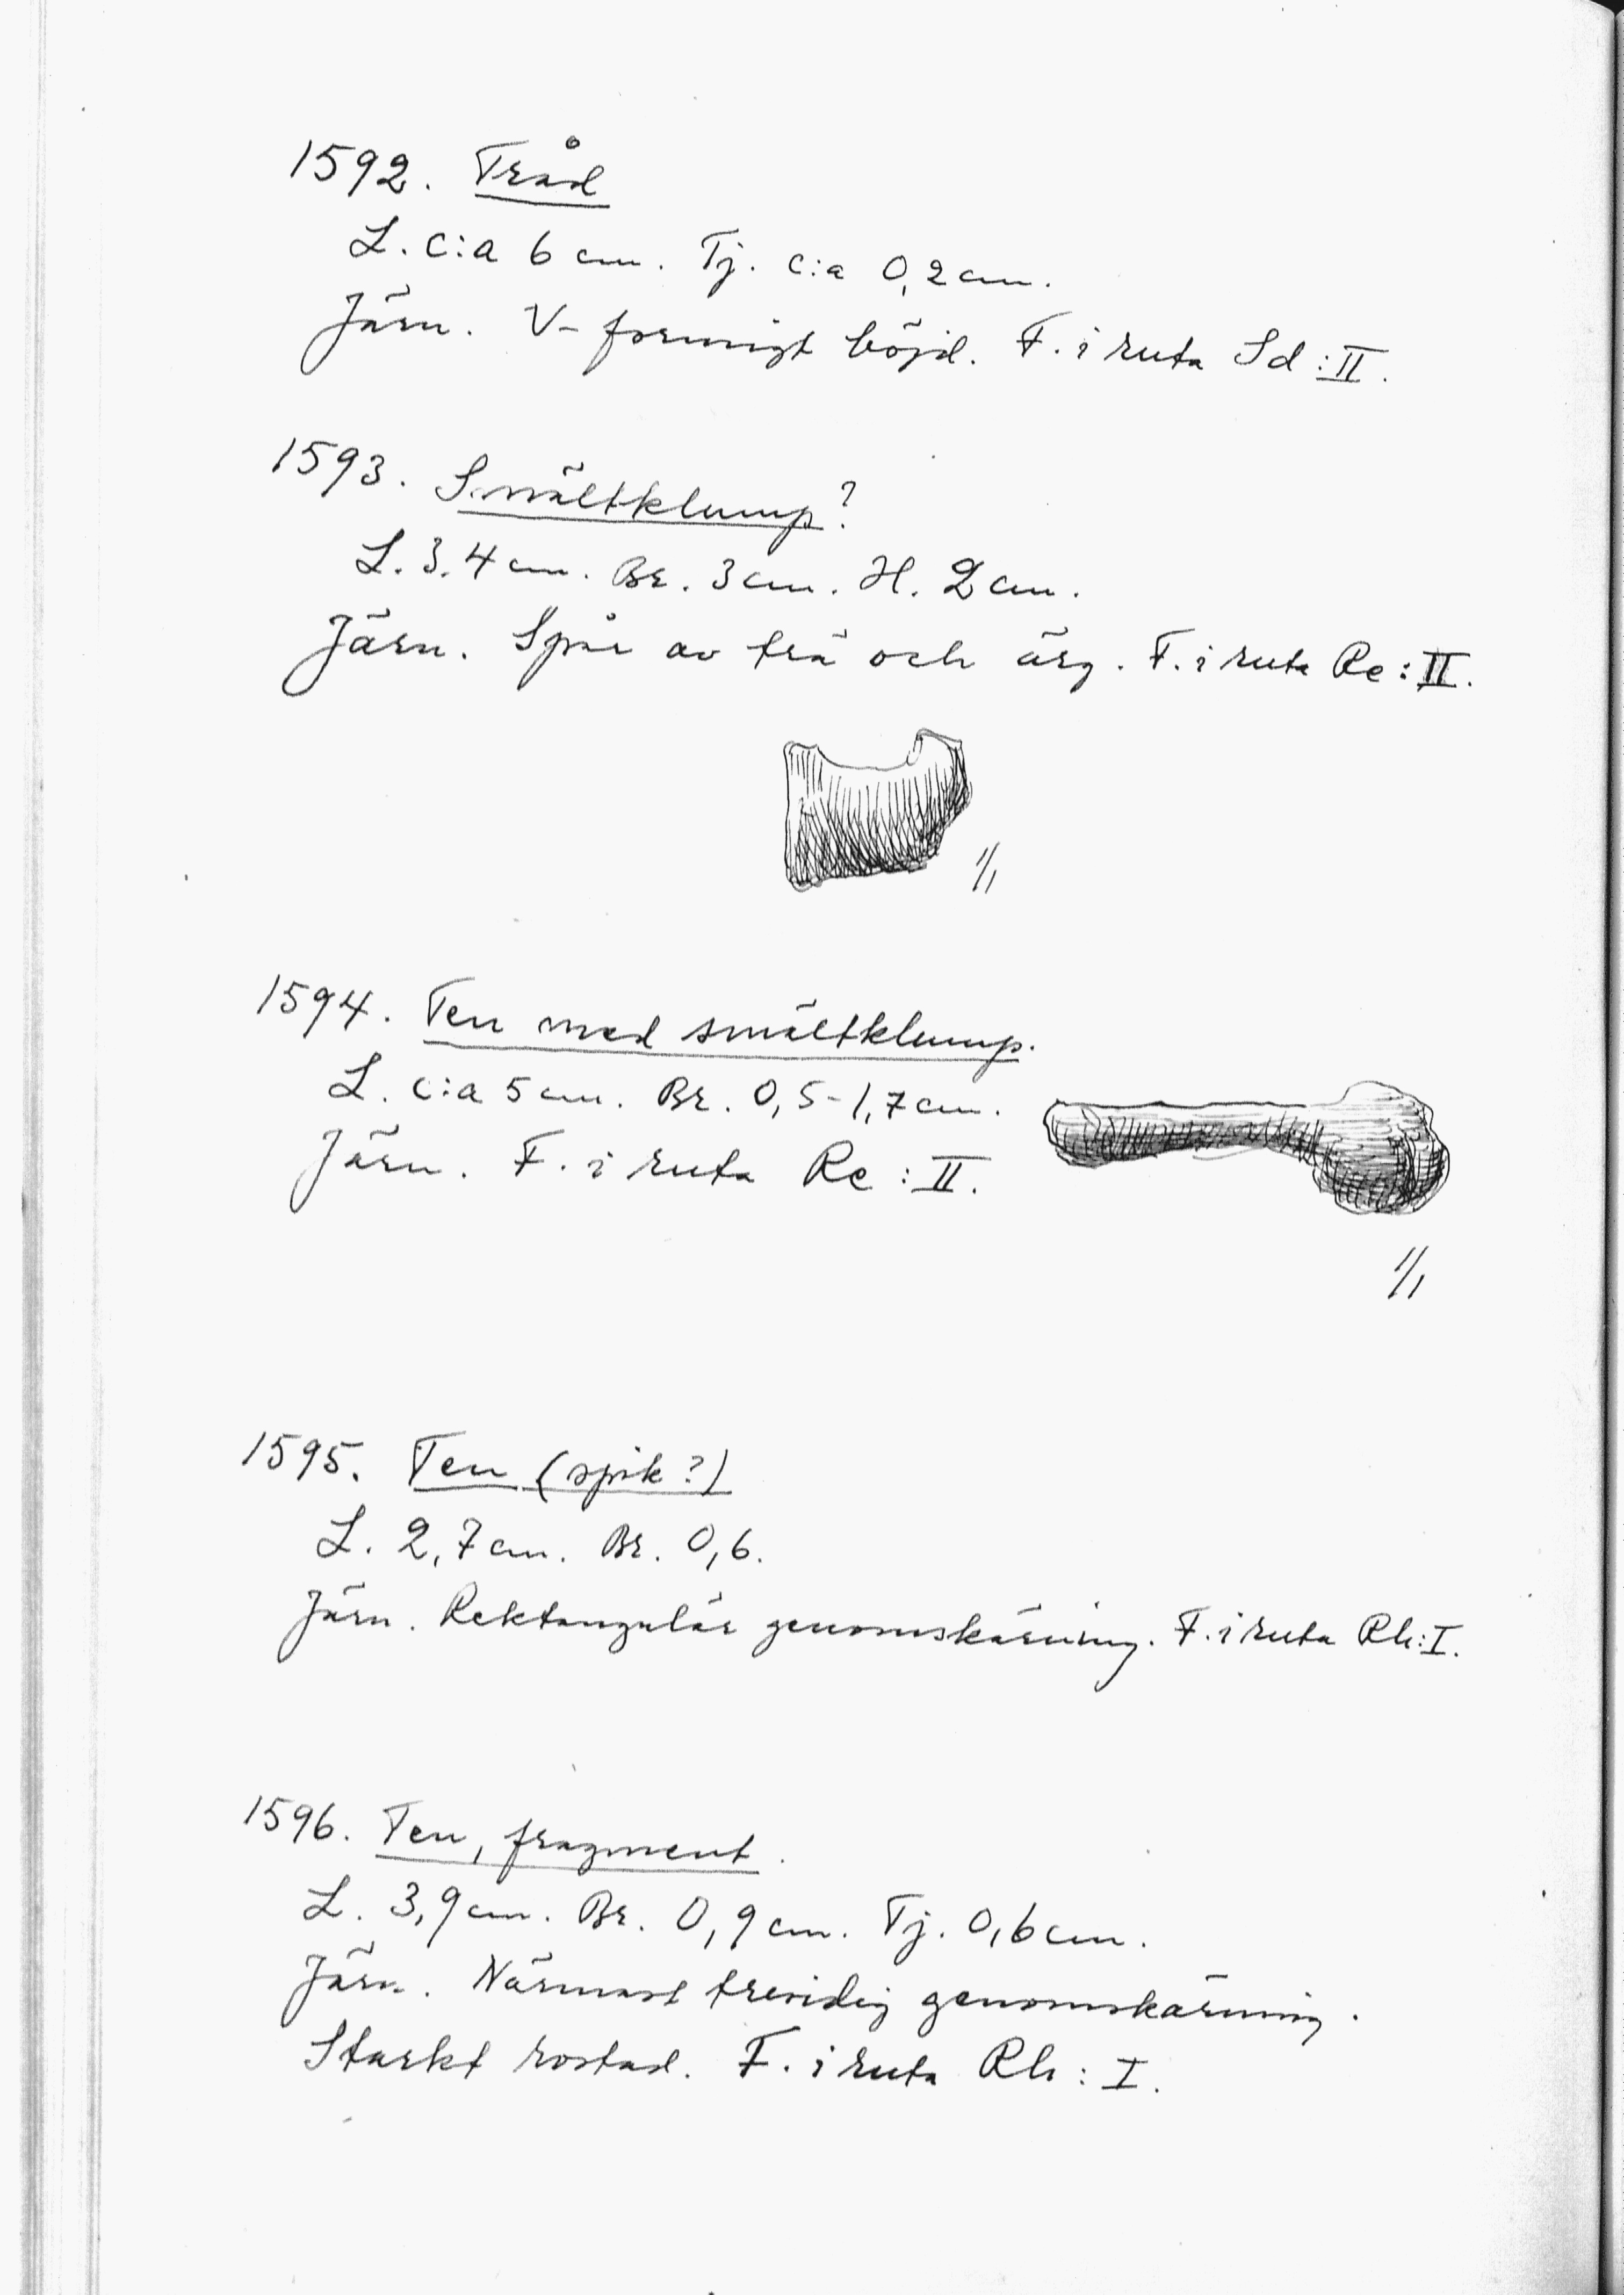 1592. Tråd
L. c:a 6 cm. Tj. c:a 0,2 cm.
Järn. V-formigt böjd. F. i ruta Sd:II.
1593. Smältklump?
L. 3.4 cm. Br. 3 cm. H. 2 cm.
Järn. Spår av trä och ärg. F. i ruta Re:II.
1/1
1594. Ten med smältklump.
L. c:a 5 cm. Br. 0,5-1,7 cm.
Järn. F. i ruta Re:II.
1/1
1595. Ten (spik?)
L. 2,7 cm. Br. 0,6.
Järn. Rektangulär genomskärning. F. i ruta Rh:I.
1596. Ten, fragment.
L. 3,9 cm. Br. 0,9 cm. Tj. 0,6 cm.
Järn. Närmast tresidig genomskärning.
Starkt rostad. F. i ruta Rh: I.